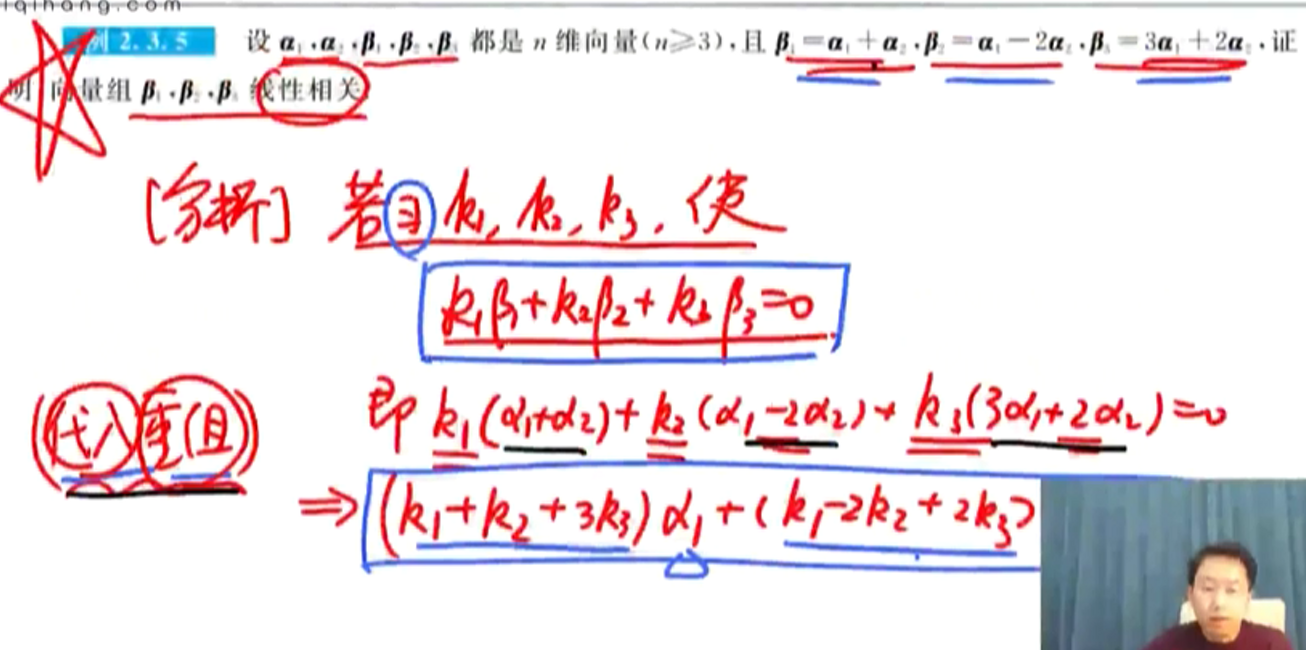 iqihang.com
例 2.3.5 设 α₁,α₂,β₁,β₂,β₃ 都是 n 维向量(n≥3),且 β₁=α₁+α₂,β₂=α₁-2α₂,β₃=3α₁+2α₂,证
明 向量组 β₁,β₂,β₃ 线性相关
[分析] 若∃ k₁, k₂, k₃, 使
k₁β₁+k₂β₂+k₃β₃=0
(代入重组) 即 k₁(α₁+α₂)+k₂(α₁-2α₂)+k₃(3α₁+2α₂)=0
⇒ (k₁+k₂+3k₃)α₁+(k₁-2k₂+2k₃)